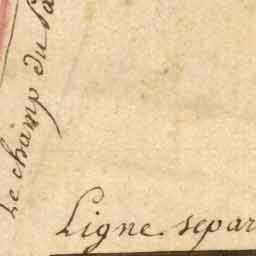 Le champ du
Ligne separ